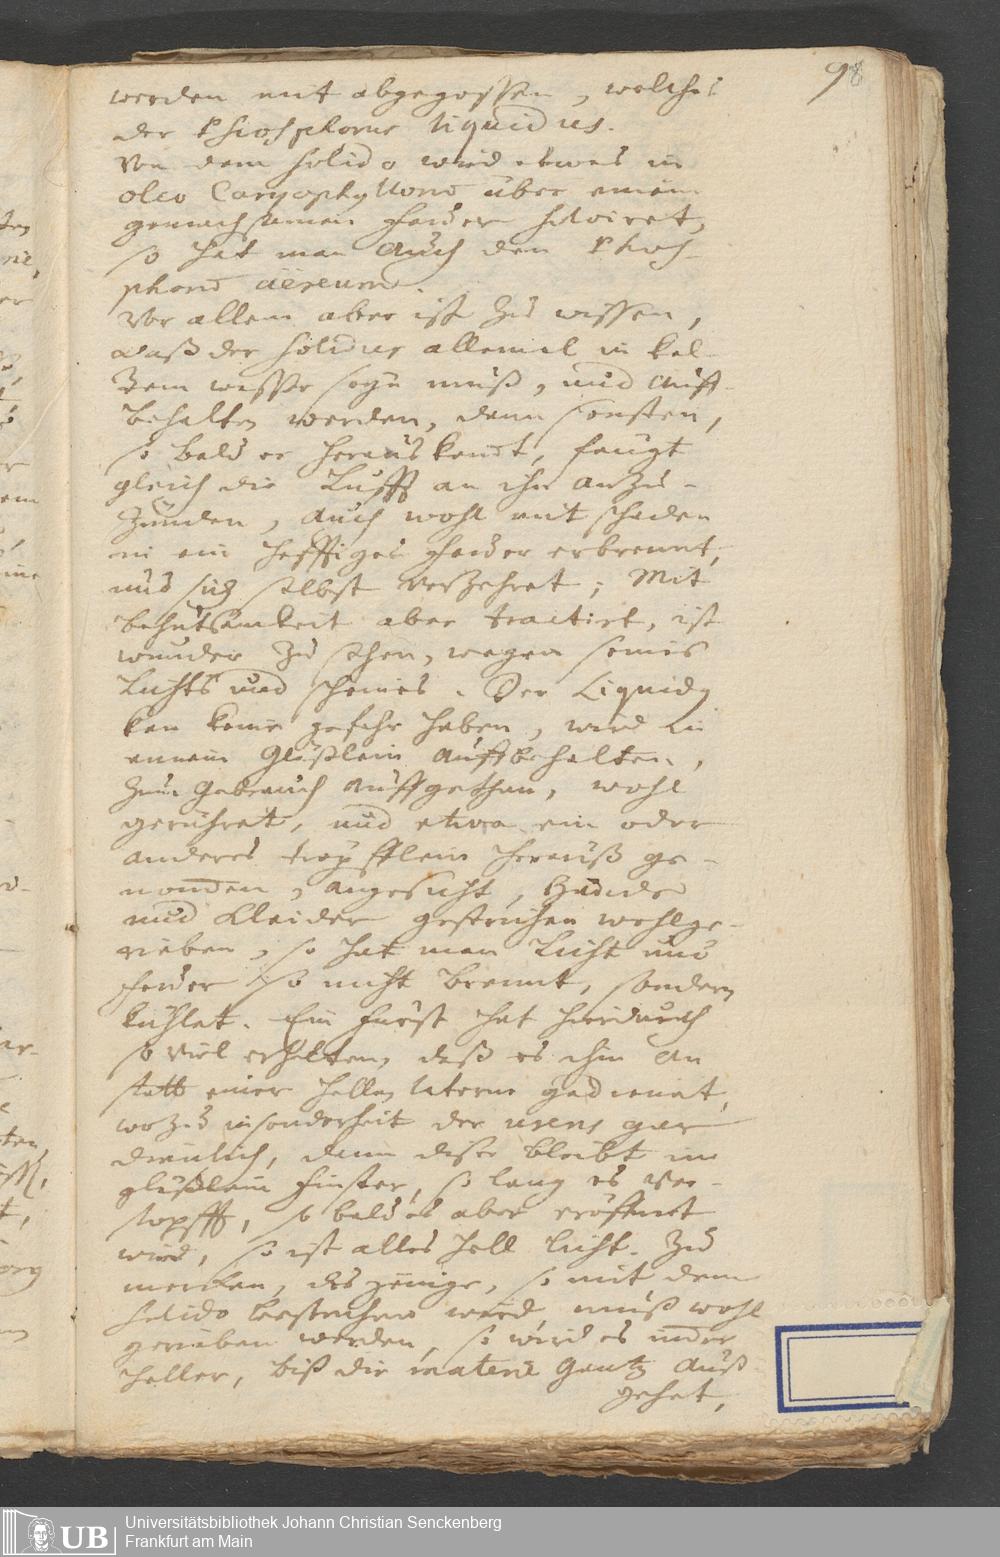 98
werden mit abgegossen, welches
der Phosphorus liquidus.
Von dem solido wird etwas in
oleo Caryophyllorū über einem
gemachsamen feüer solviret,
so hat man auch den Phos-
phorū aëreum.
Vor allem aber ist zu wissen,
daß der solidus allemal in kal-
tem wasser seyn muß, und auff-
behalten werden, denn sonsten,
so bald er heraus komt, fangt
gleich die Lufft an ihn anzu-
zünden, auch wohl mit schaden
in ein hefftiges feüer erbrennt,
und sich selbst verzehret; Mit
behutsamkeit aber tractirt, ist
wunder zu sehen, wegen seines
Lichts und scheines. Der Liquidus
kan keine gefahr haben, wird in
einem Gläßlein auffbehalten,
zum Gebrauch auffgethan, wohl
gerühret, und etwa ein oder
anderes tröpfflein herauß ge-
nom̄en, angesicht, Hände
und Kleider gestrichen wohl ge-
rieben, so hat man Licht und
feüer so nicht brennt, sondern
kühlet. Ein Fürst hat hierdurch
so viel erhalten, daß es ihm an
statt einer hellen laterne gedienet,
wozu insonderheit der
dienlich, denn dieser bleibt im
gläßlein finster, so lang es ver-
stopfft, so bald es aber eröffnet
wird, so ist alles hell licht. Zu
mercken, das jenige, so mit dem
solido bestrichen wird muß wohl
gerieben werden, so wird es im̄er
heller, biß die materie gantz auß
gehet,
Universitätsbibliothek Johann Christian Senckenberg
Frankfurt am Main
UB